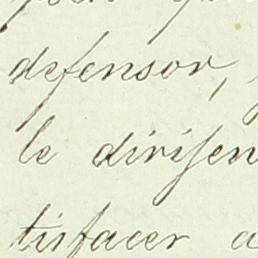 defensor,
le dirijen
tisfacer a